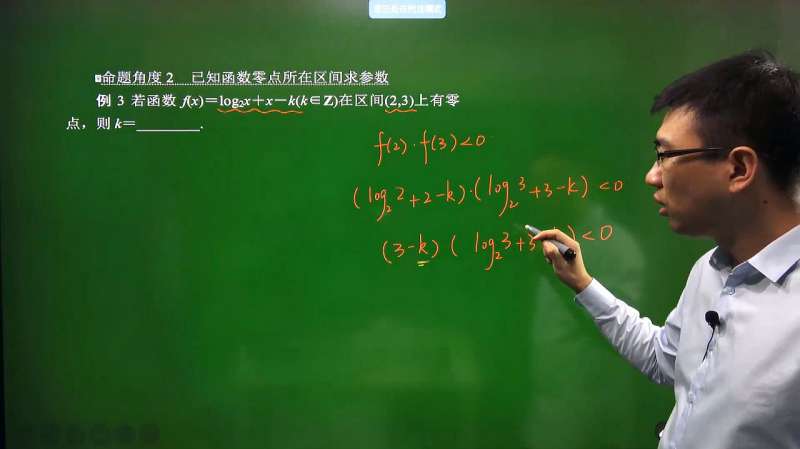 命题角度2 已知函数零点所在区间求参数
例3 若函数 f(x)=log₂x+x-k(k∈Z)在区间(2,3)上有零
点，则 k=________.
f(2)·f(3)<0
(log₂2+2-k)·(log₂3+3-k)<0
(3-k)(log₂3+3 )<0